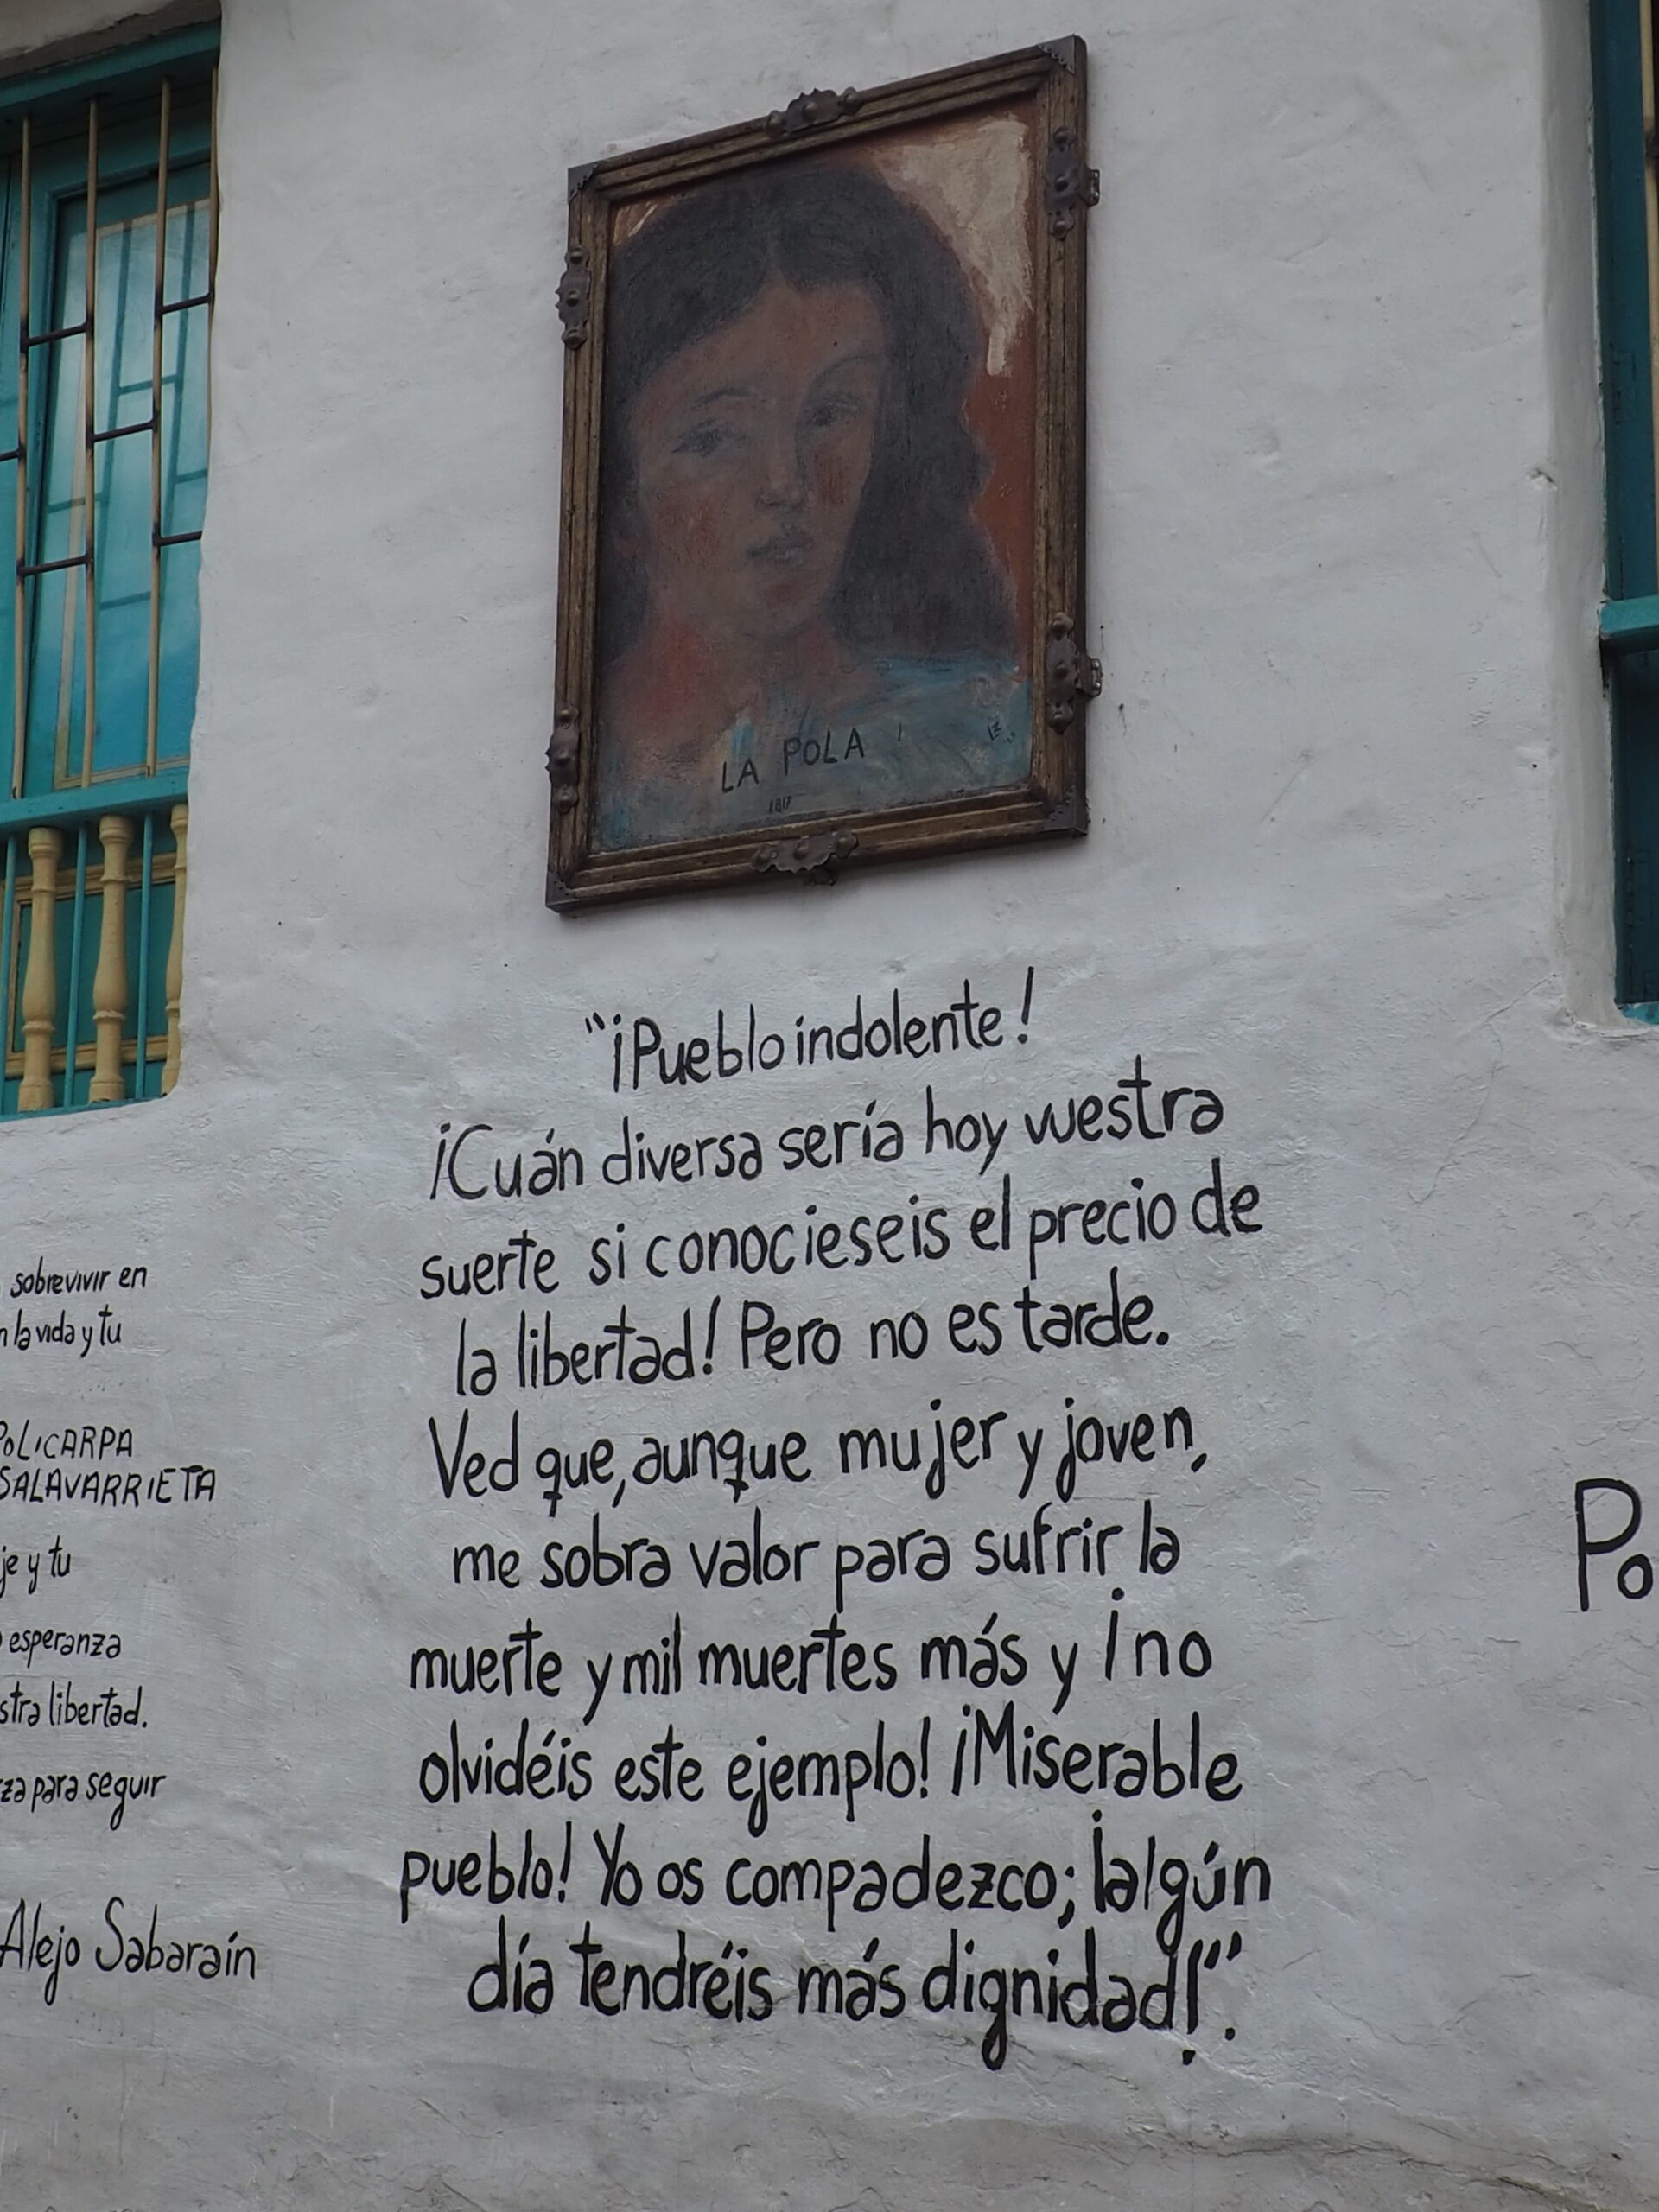 LA POLA
1817
"¡Pueblo indolente!
¡Cuán diversa sería hoy vuestra
suerte si conocieseis el precio de
la libertad! Pero no es tarde.
Ved que, aunque mujer y joven,
me sobra valor para sufrir la
muerte y mil muertes más y ¡no
olvidéis este ejemplo! ¡Miserable
pueblo! Yo os compadezco; ¡algún
día tendréis más dignidad!".
sobrevivir en
la vida y tu
POLICARPA
SALAVARRIETA
y tu
esperanza
libertad.
para seguir
Alejo Sabaraín
Po